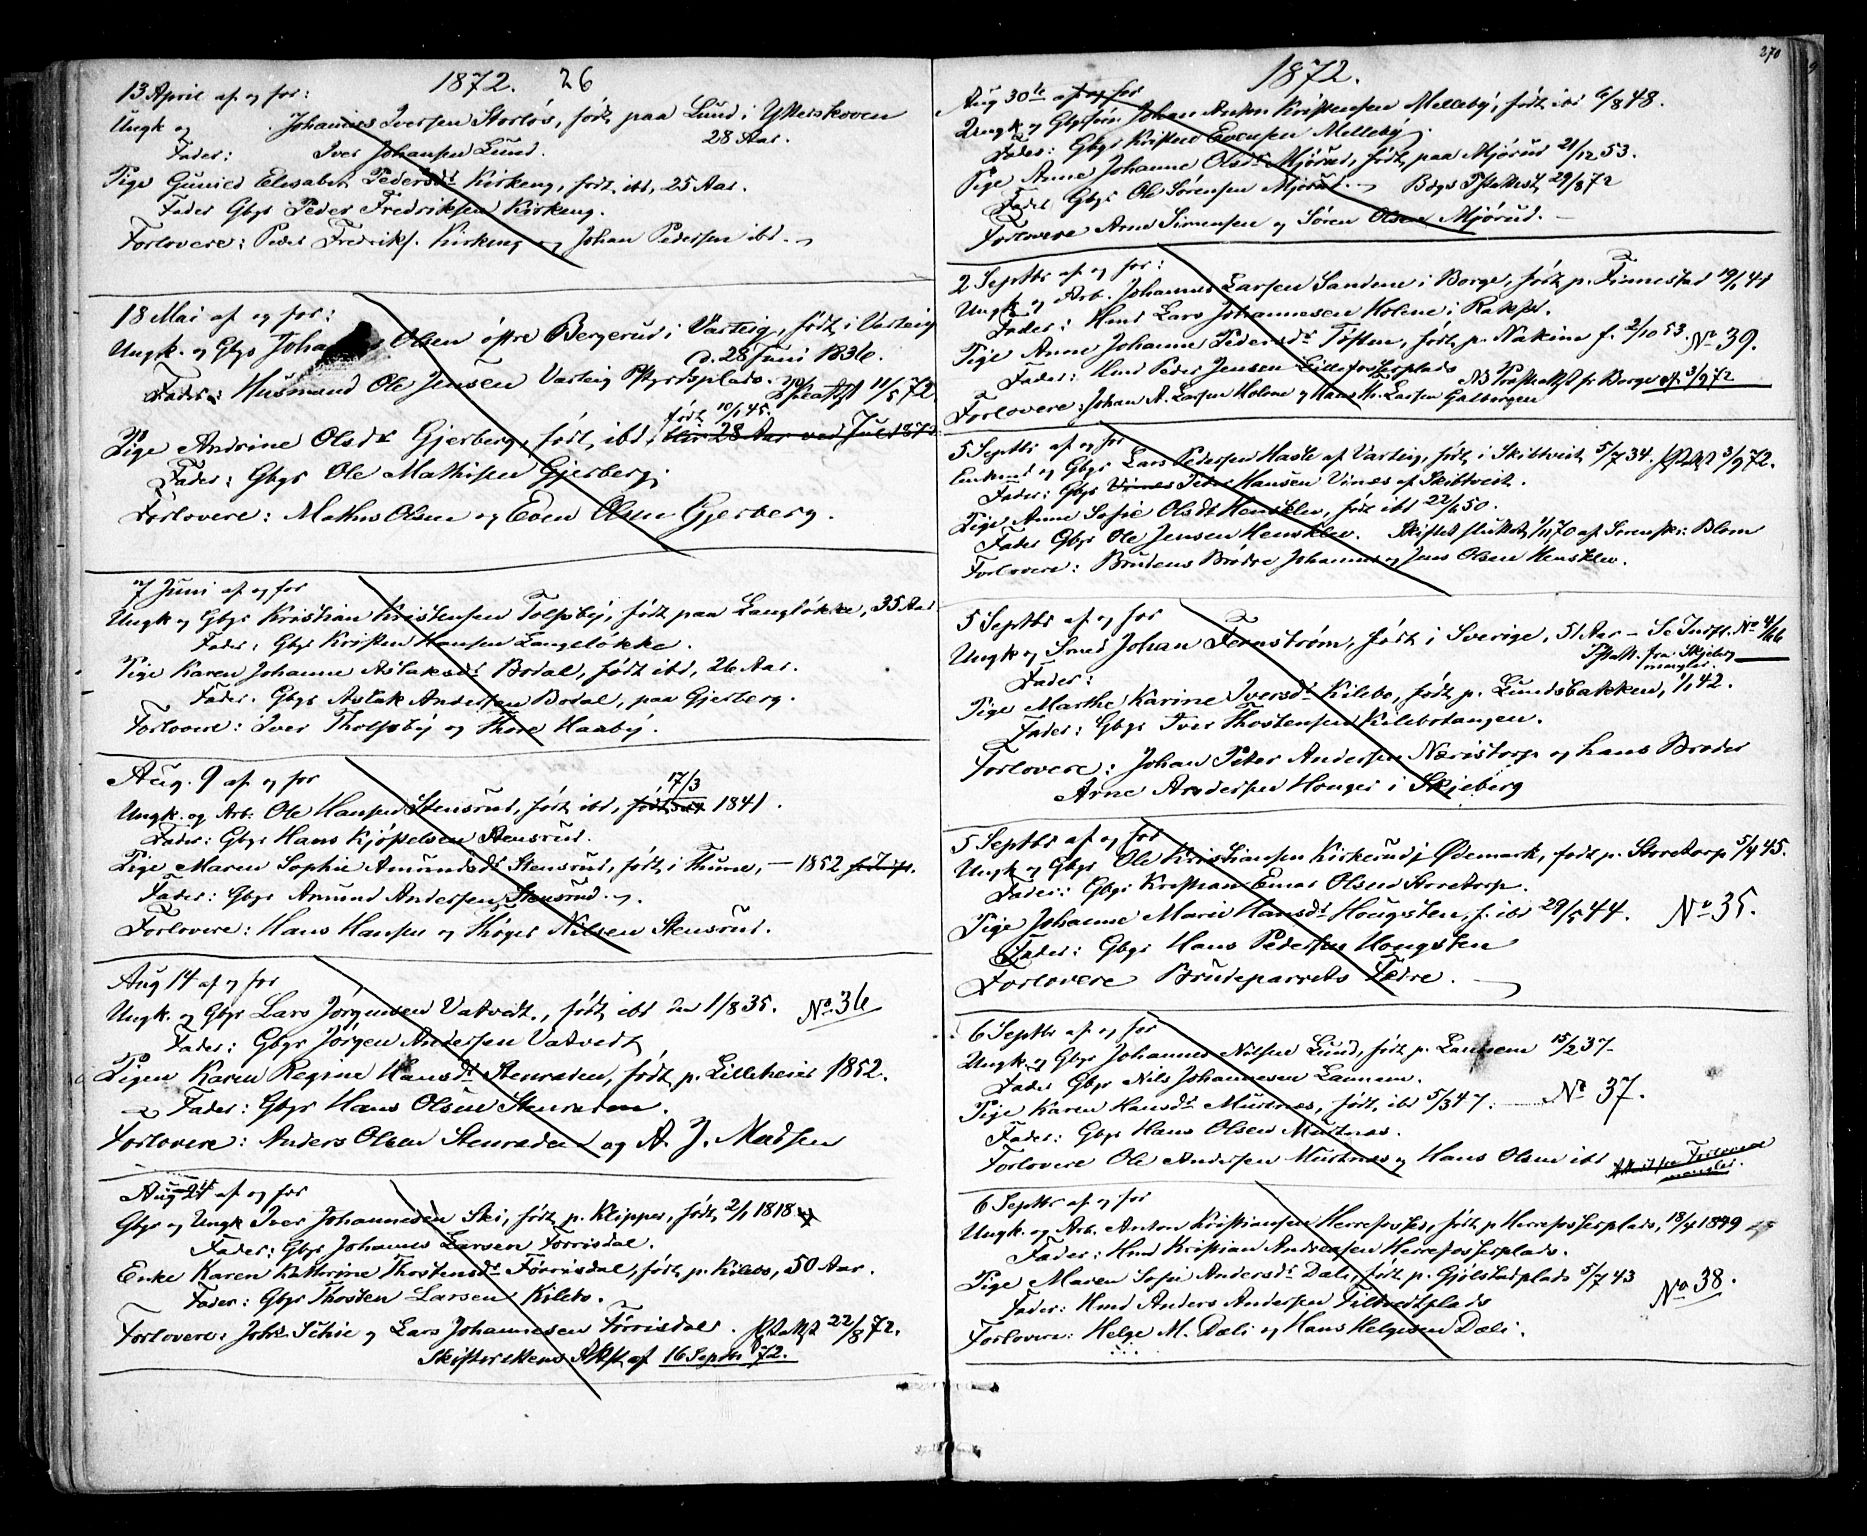 1872. 26
13 April af og for:
Ungk og Johannes Iversen Storlös, född, paa Lund i Ytterskoven
28 Aar.
Fader: Iver Johansen Lund.
Pige Gunild Elisabet Pedersdt Kirkeng, født ibd, 25 Aar.
Fader Gbgr Peder Fredriksen Kirkeng.
Forlovere: Peder Fredriks. Kirkeng og Johan Pedersen ibd.
18 Mai af og for:
Ungk. og Gbgr Johannes Olsen östre Bergerud i Varteig, født i Varteig
d. 28 Juni 1836.
Fader: Husmand Ole Jensen Varteig Prgdsplads. 11/5 72
født 10/1 45.
Pige Andrine Olsdt Gjerberg, født, ibd, bliver 28 Aar ved Jul 187
Fader: Gbgr Ole Mathisen Gjerberg.
Forlovere: Mathis Olsen og Even Olsen Gjerberg.
7 Juni af og for
Ungk og Gbgr Kristian Kristensen Tolfsby, født paa Langløkke, 35 Aar
Fader: Gbgr Kristen Hansen Langeløkke.
Pige Karen Johanne Aslaksdt Bodal, født ibd, 26 Aar.
Fader. Gbgr Aslak Andersen Bodal, paa Gjerberg.
Forlovere: Iver Tholfsby og Thore Haaby.
Aug. 9 af og for
17/3
Ungk. og Arb. Ole Hansen Stensrud, født, ibd, født 1841.
Fader: Gbgr Hans Kjøstelsen Stensrud.
Pige Maren Sophie Amundsdt Stensrud, født i Thune, – 1852
Fader: Gbgr Amund Andersen Stensrud.
Forlovere: Hans Hansen og Thöger Nilsen Stensrud.
Aug 14 af og for
Ungk. og Gbgr Lars Jørgensen Vatvedt, født ibd den 1/8 35. No 36
Fader: Gbgr Jørgen Andersen Vatvedt
Pigen Karen Regine Hansdt Stenraden, født p. Lilleheier 1852.
Fader: Gbgr Hans Olsen Stenraden.
Forlovere: Anders Olsen Stenraden og A. J. Madsen
Aug 24 af og for
Gbgr og Ungk Iver Johannesen Ski, født p. Klipper, født 2/1 1818
Fader: Gbgr Johannes Larsen Torrisdal.
Enke Karen Kathrine Thostensdt Torrisdal, født p. Kilebo, 50 Aar.
Fader: Gbgr Thosten Larsen Kilebo.
Forlovere: Johs. Schie og Lars Johannesen Torrisdal. 22/8 72.
Skifterettens Attst af 16 Septbr 72.
270
1872.
Aug 30te af og for
Ungk og Gbgrsøn Johan Anton Kristensen Melleby, født ibd 6/8 48.
Fader: Gbgr Kristen Evensen Melleby.
Pige Anne Johanne Olsdt Mjørud, født, paa Mjørud 21/12 53.
Fader Gbgr Ole Sørensen Mjørud. 29/8 72
Forlovere Arne Simensen og Søren Olsen Mjørud.
2 Septbr af og for:
Ungk og Arb. Johannes Larsen Sandene i Borge, født p. Finnestad 19/1 44
Fader: Hmd Lars Johannesen Holene i Rakkst.
Pige Anne Johanne Pedersdt Toften, født, p. Nakim f. 2/10 53. No 39.
Fader: Hmd Peder Jensen Lillefosserplads NB fr Borge af 3/9 72
Forlovere: Johan A. Larsen Holene og Hans Kr. Larsen Galbergen
5 Septbr af og for
Enkmd og Gbgr Lars Pedersen Hasle af Varteig, født i Skibtveit 5/7 34. 3/9 72.
Fader: Gbgr Vines Peder Hansen Vines af Skibtveit.
Pige Anne Sofie Olsdt Hensklev, født ibd 22/1 50.
Fader Gbgr Ole Jensen Hensklev. Skiftet sluttet 1/11 70 af Sorenskr: Blom
Forlovere: Brudens Brødre Johannes og Jens Olsen Hensklev.
5 Septbr af og for
Ungk og Smed Johan Fernstrøm, født i Sverige, 51 Aar – No 4/66
fra Skjeberg
mangler.
Fader:
Pige Marthe Karine Iversdt Kilebo, født p. Lundsbakken, 1/1 42.
Fader: Gbgr Iver Thostensen Kilebotangen.
Forlovere: Johan Peter Andersen Neristorp og hans Broder
Arne Andersen Honger i Skjeberg
5 Septbr af og for
Ungk og Gbgr Ole Kristiansen Kirkerud i Ødemark, født p. Storetorp 5/4 45.
Fader: Gbgr Kristian Emas Olsen Storetorp.
Pige Johanne Marie Hansdt Hougsten, f. ibd 29/5 44. No 35.
Fader: Gbgr Hans Pedersen Hougsten
Forlovere Brudeparrets Fædre.
6 Septbr af og for
Ungk og Gbgr Johannes Nilsen Lund, født p. Lannem 15/2 37.
Fader Gbgr Nils Johannesen Lannem.
Pige Karen Hansdt Mustnæs, født, ibd 5/3 47. No 37.
Fader: Gbgr Hans Olsen Mustnæs.
Forlovere Ole Andersen Mustnæs og Hans Olsen ibd Attest fra Forlovere
mangler.
6 Septbr af og for
Ungk. og Arb. Anton Kristiansen Herrefosser, født p Herrefosserplads, 18/4 1849
Fader: Hmd Kristian Andreasen Herrefosserplads.
Pige Maren Sofie Andersdt Dæli, født p. Gjølstadplads 5/7 43 No 38.
Fader: Hmd Anders Andersen Tiltvedtplads
Forlovere: Helge M. Dæli og Hans Helgesen Dæli.